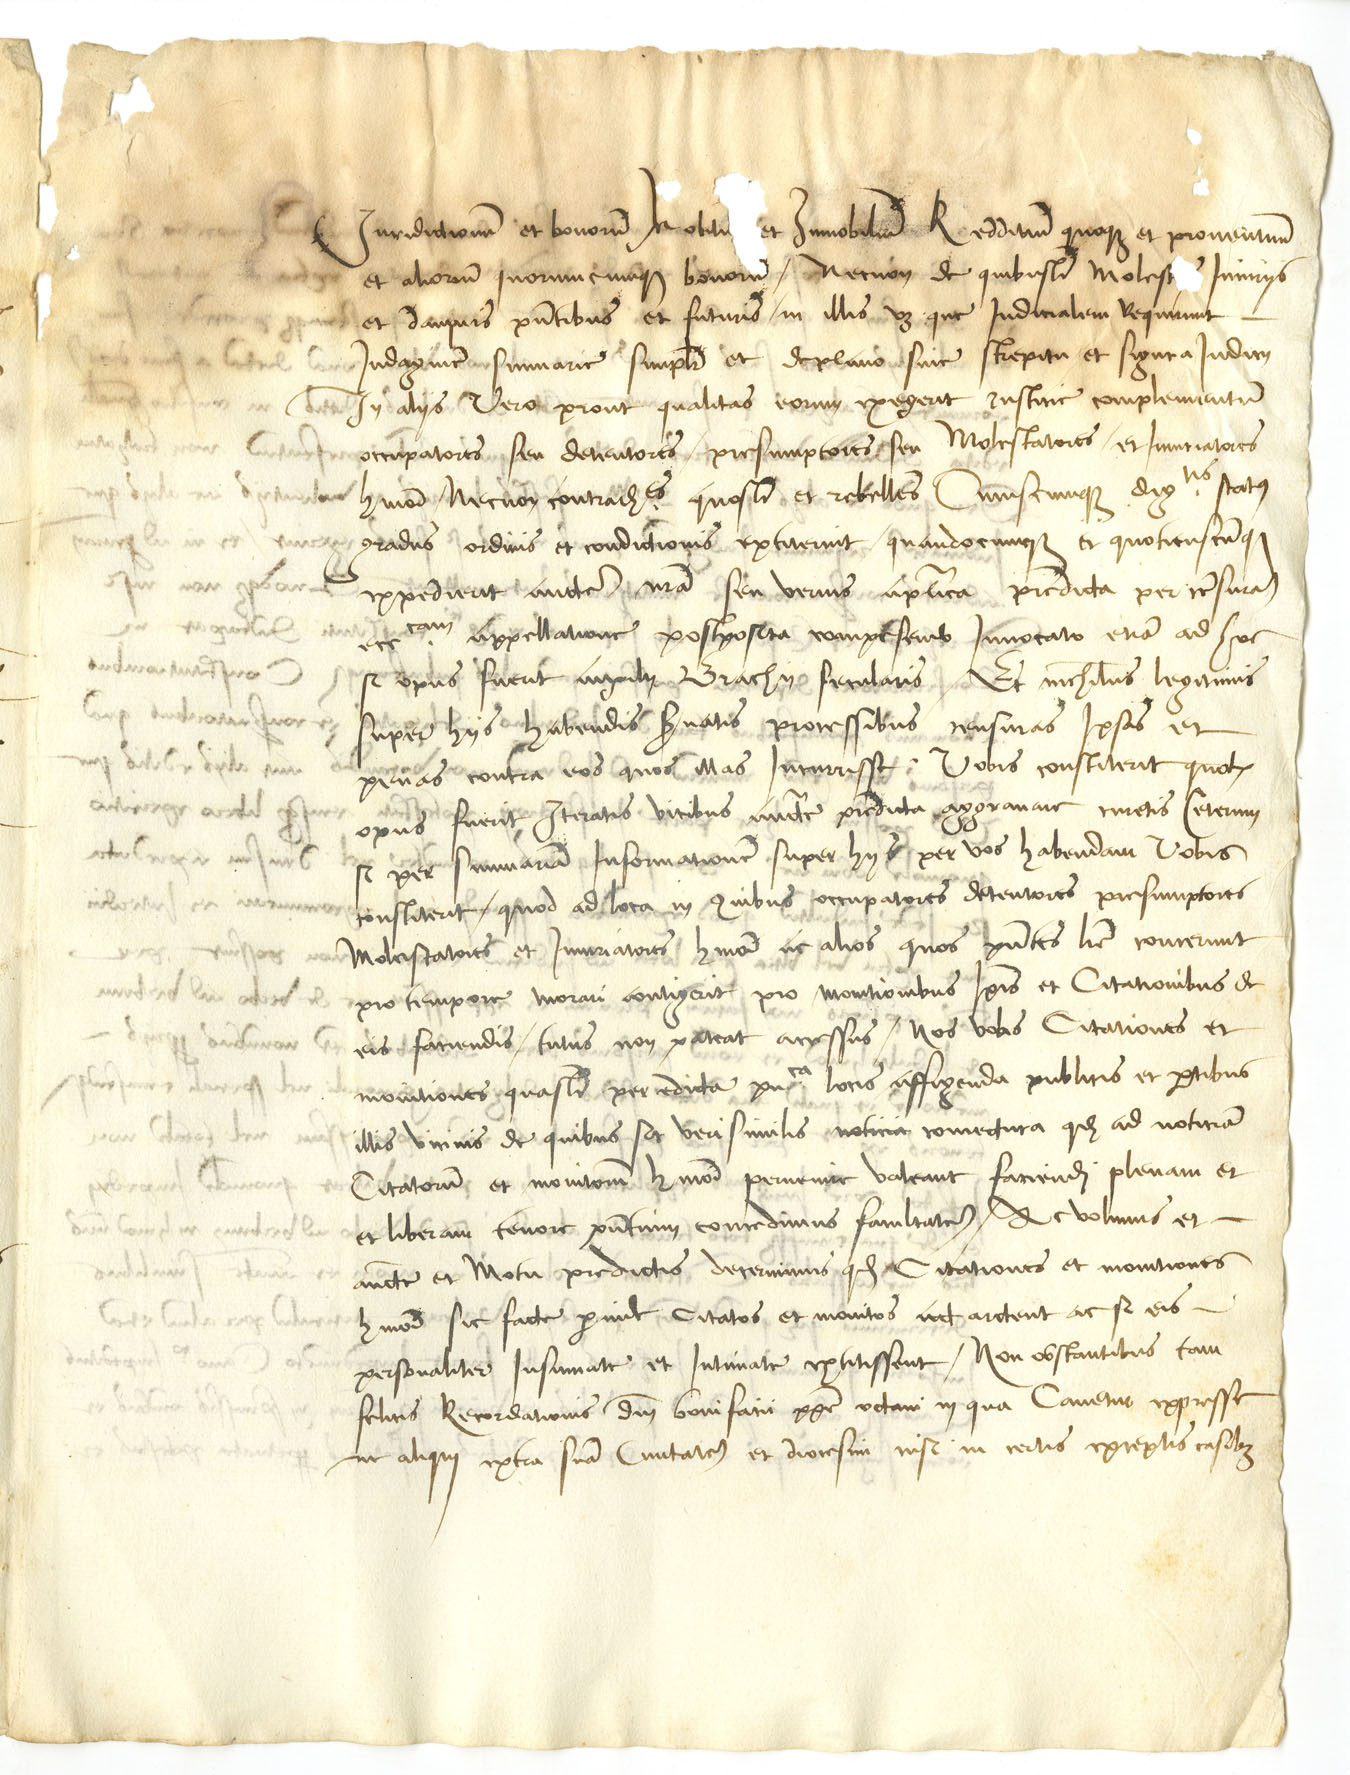 Jurisdictionū et bonorū Mobiliū et Inmobiliū Reddituū quoqꝫ et prouentuum
et aliorum quorumcumqꝫ bonorū / Necnon de quibuslꝫ Molestiis Iniuriis
et dampnis pñtibus et futuris / in illis vꝫ que Iudicialem Requirunt
Indaginē summarie simplr̄ et deplano sine strepitu et figura Iudicij
In alijs Vero prout qualitas eorum exegerit Justitie complementū
occupatores seu detentores / presumptores seu Molestatores / et Iniuriatores
hmōi / Necnon contradces quoslꝫ et rebelles Cuiuscumqꝫ digtis status
gradus ordinis et condictionis extiterint / quandocumqꝫ et quotienscūqꝫ
expedierit aucte nrā seu verius aplica predicta per censurā
ecccam appellatione postposita compescendo Inuocato etiā ad hoc
si opus fuerit auxilij Brachij secularis / Et nichilus legitimis
super hijs habendis seruatis processibus censuras Ipsas et
penas contra eos quos illas Incurrisse Vobis constiterit quotiens
opus fuerit Iteratis vicibus aucte predicta aggrauare curetis Ceterum
si per summariā Informationē super hijs per vos habendam Vobis
constiterit / quod ad loca in quibus occupatores detentores presumptores
Molestatores et Iniuriatores hmōi ac alios quos pñtes lrē concernunt
pro tempore morari contigerit pro monitionibus Ipsis et Citationibus de
eis faciendis / tutus non pateat accessus / Nos vobis Citationes et
monitiones quaslꝫ per edicta puca locis affigenda publicis et ptibus
illis vicinis de quibus sit verisimilis noticia coniectura qd ad noticiā
Citatorū et monitorū hmōi peruenire valeant faciendi plenam et
et liberam tenore pñtium concedimus facultatē / Ac volumus et
aucte et Motu predictis decernimus qd Citationes et monitiones
hmōi sic facte perinde Citatos et monitos vt arctent ac si eis
personaliter Insinuate et Intimate extitissent / Non obstantibus tam
felicis Recordationis dñi bonifacii ppe octaui in qua Cauetur expresse
ne aliquis extra suā Ciuitatē et diocesim nisi in certis exceptis casibꝫ